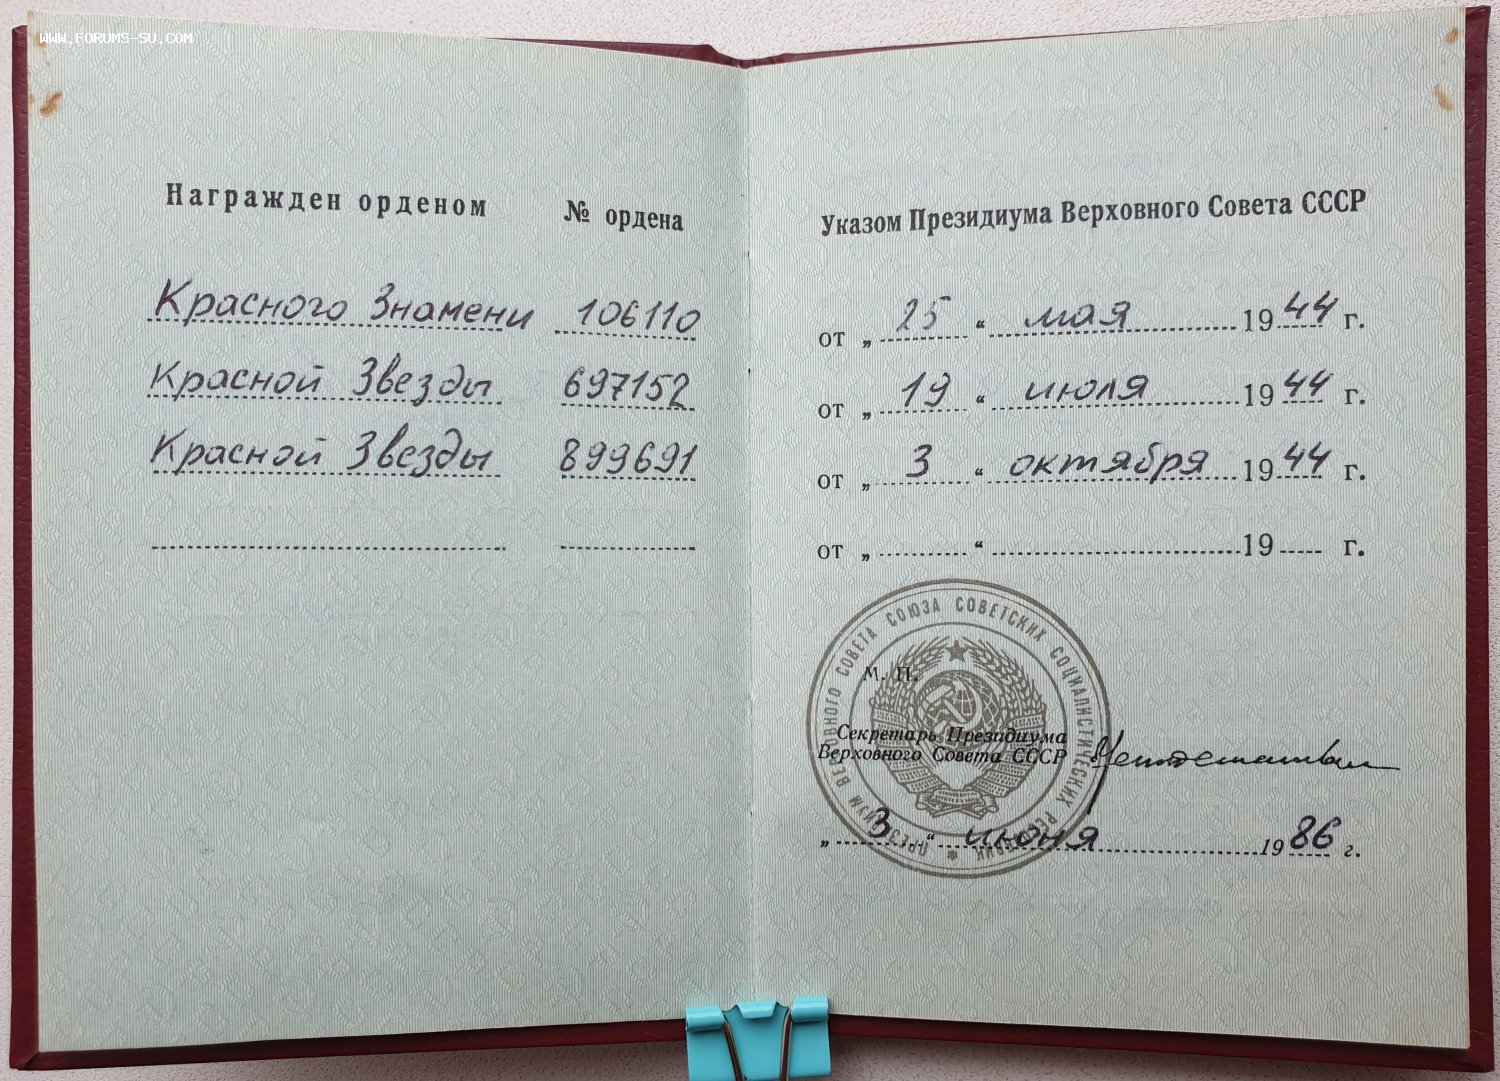 WWW.FORUMS-SU.COM
Награжден орденом № ордена
Красного Знамени 106110
Красной Звезды 697152
Красной Звезды 899691
Указом Президиума Верховного Совета СССР
от „ 25 “ мая 1944 г.
от „ 19 “ июля 1944 г.
от „ 3 “ октября 1944 г.
от „ “ 19 г.
ПРЕЗИДИУМ ВЕРХОВНОГО СОВЕТА СОЮЗА СОВЕТСКИХ СОЦИАЛИСТИЧЕСКИХ РЕСПУБЛИК
М. П.
Секретарь Президиума
Верховного Совета СССР
„ 3 “ июня 1986 г.